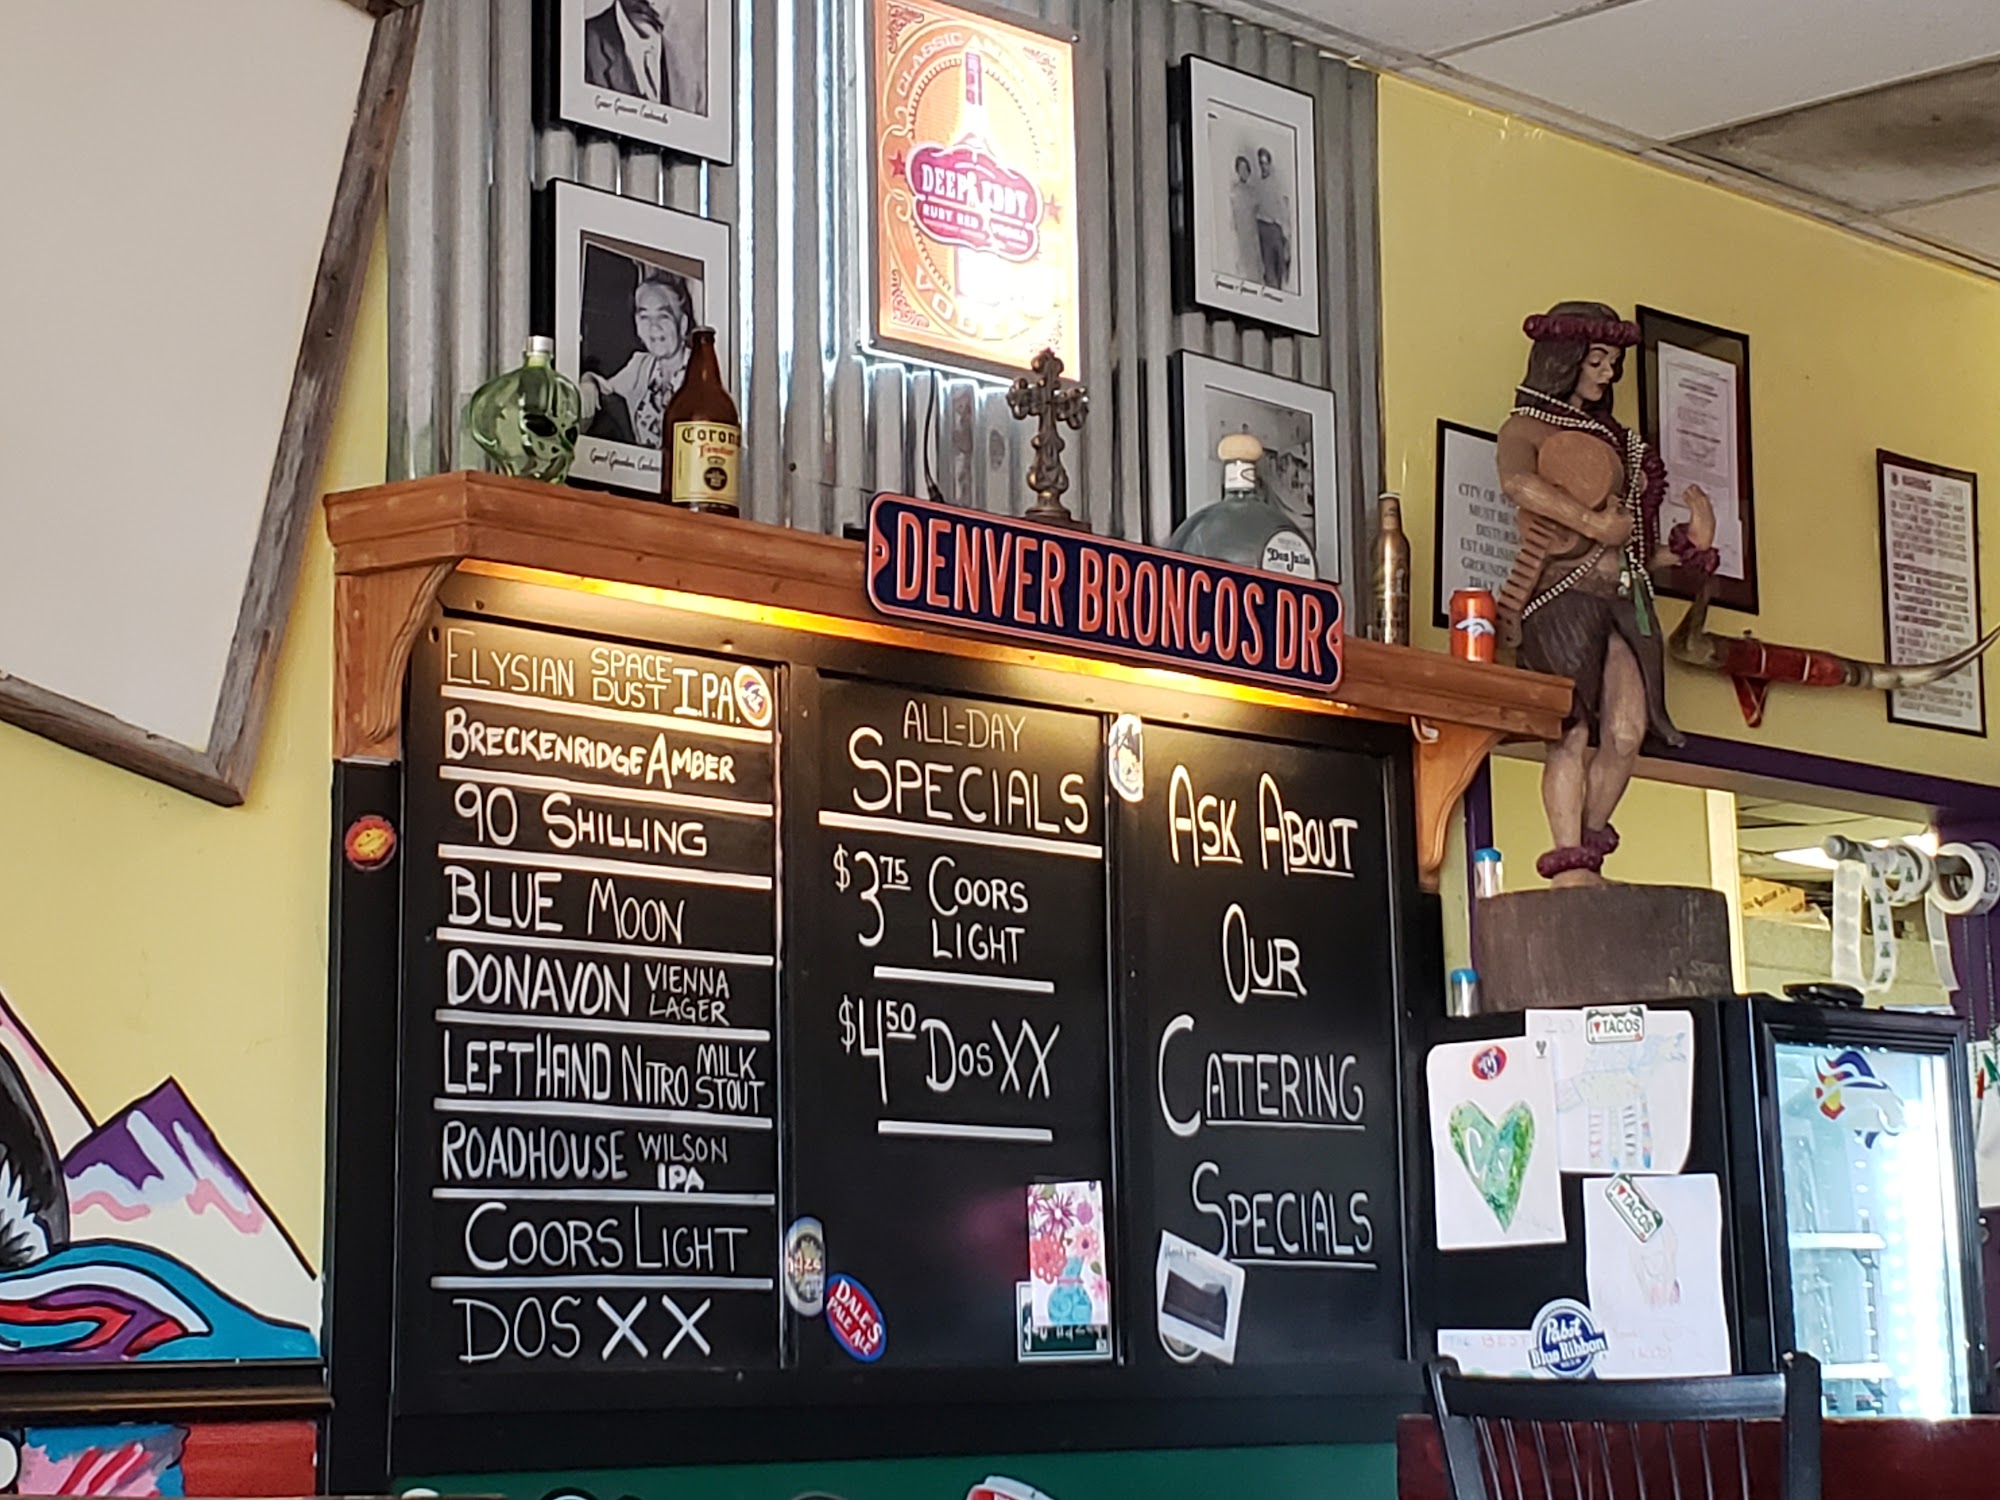 CLASSIC
DEEP EDDY
RUBY RED VODKA
VODKA
Corona
Familiar
Don Julio
DENVER BRONCOS DR
CITY OF
MUST BE
DISTURB
ESTABLISH
GROUNDS
THAT
WARNING
ELYSIAN SPACE DUST I.P.A.
BRECKENRIDGE AMBER
90 SHILLING
BLUE MOON
DONAVON VIENNA LAGER
LEFTHAND NITRO MILK STOUT
ROADHOUSE WILSON IPA
COORS LIGHT
DOS XX
ALL-DAY
SPECIALS
$3.75 COORS
LIGHT
$4.50 DOS XX
ASK ABOUT
OUR
CATERING
SPECIALS
DALE'S
PALE ALE
I ♥ TACOS
I ♥ TACOS
Pabst
Blue Ribbon